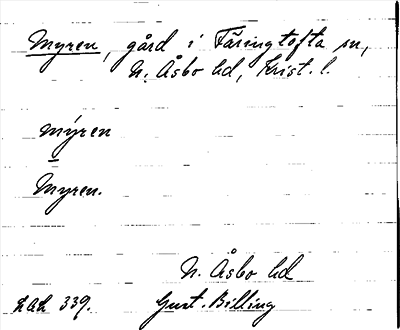 Myren, gård i Färingtofta sn,
N. Åsbo hd, Krist. l.
mýren
Myren.
N. Åsbo hd
339. Gust. Billing